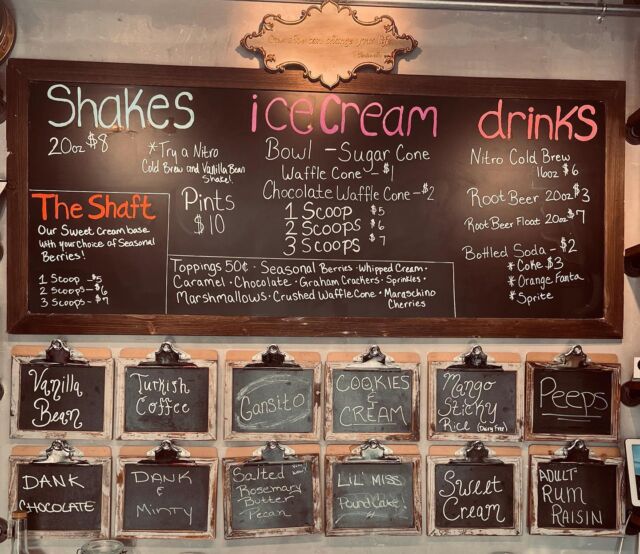 Shakes
20oz $8
*Try a Nitro
Cold Brew and Vanilla Bean
Shake!
The Shaft
Our Sweet Cream base
with your choice of Seasonal
Berries!
1 Scoop - $5
2 Scoops - $6
3 Scoops - $7
Pints
$10
ice cream
Bowl - Sugar Cone
Waffle Cone - $1
Chocolate Waffle Cone - $2
1 Scoop $5
2 Scoops $6
3 Scoops $7
Toppings 50¢ · Seasonal Berries · Whipped Cream ·
Caramel · Chocolate · Graham Crackers · Sprinkles ·
Marshmallows · Crushed Waffle Cone · Maraschino
Cherries
drinks
Nitro Cold Brew
16oz $6
Root Beer 20oz $3
Root Beer Float 20oz $7
Bottled Soda - $2
* Coke $3
* Orange Fanta
* Sprite
Vanilla
Bean
Turkish
Coffee
Gansito
COOKIES
&
CREAM
Mango
Sticky
Rice (Dairy Free)
Peeps
DANK
CHOCOLATE
DANK
&
Minty
Salted
Rosemary
Butter
Pecan
LIL' MISS
Pound Cake!
Sweet
Cream
ADULT
RUM
RAISIN